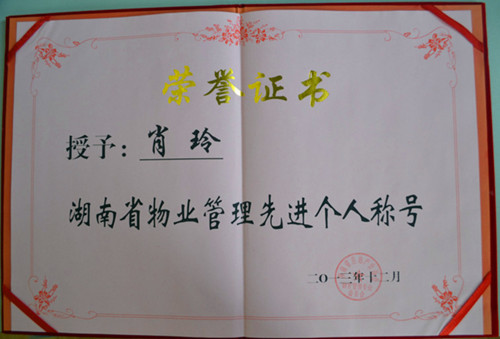 荣誉证书
授予：肖玲
湖南省物业管理先进个人称号
二〇一三年十二月